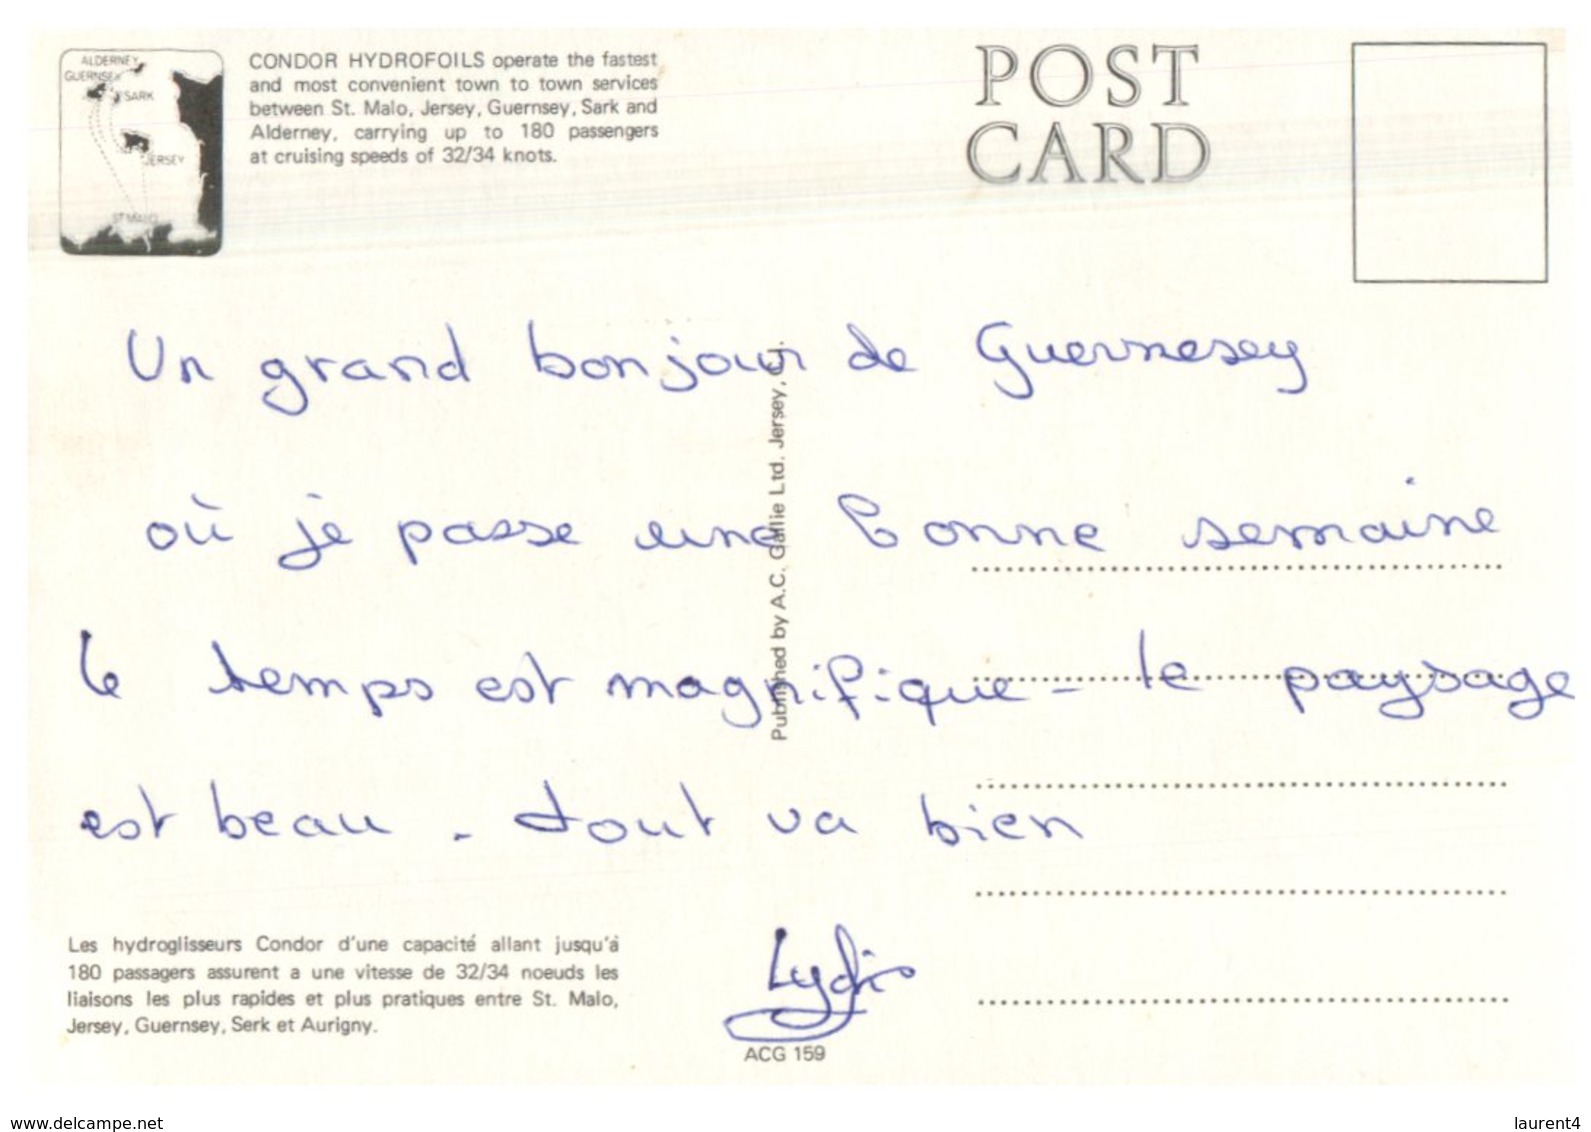 ALDERNEY
GUERNSEY
SARK
JERSEY
ST MALO
CONDOR HYDROFOILS operate the fastest
and most convenient town to town services
between St. Malo, Jersey, Guernsey, Sark and
Alderney, carrying up to 180 passengers
at cruising speeds of 32/34 knots.
POST
CARD
Un grand bonjour de Guernesey
où je passe une bonne semaine
le temps est magnifique - le paysage
est beau - tout va bien
Lydie
Published by A.C. Gallie Ltd. Jersey, C.I.
Les hydroglisseurs Condor d'une capacité allant jusqu'à
180 passagers assurent a une vitesse de 32/34 noeuds les
liaisons les plus rapides et plus pratiques entre St. Malo,
Jersey, Guernsey, Serk et Aurigny.
ACG 159
www.delcampe.net
laurent4